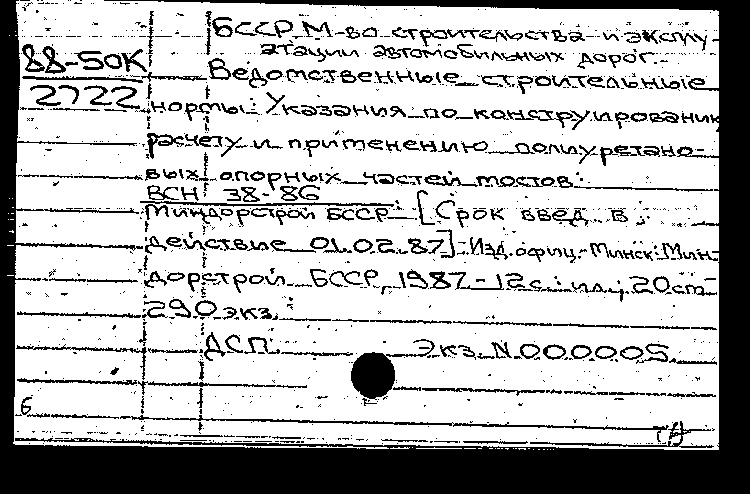 БССР. М-во строительства и эксплу-
атации автомобильных дорог.
88-50К
2722
Ведомственные строительные
нормы: Указания по конструированию
расчету и применению полиуретано-
вых опорных частей мостов:
ВСН 38-86
Миндорстрой БССР: [Срок введ. в
действие 01.02.87]-Изд. офиц.-Минск: Мин-
дорстрой БССР, 1987.-12с.: ил.; 20см-
290экз.:
ДСП. Экз. N 000005.
6